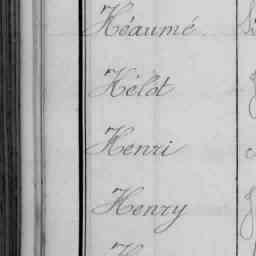 Héaumé
Hélot
Henri
Henry